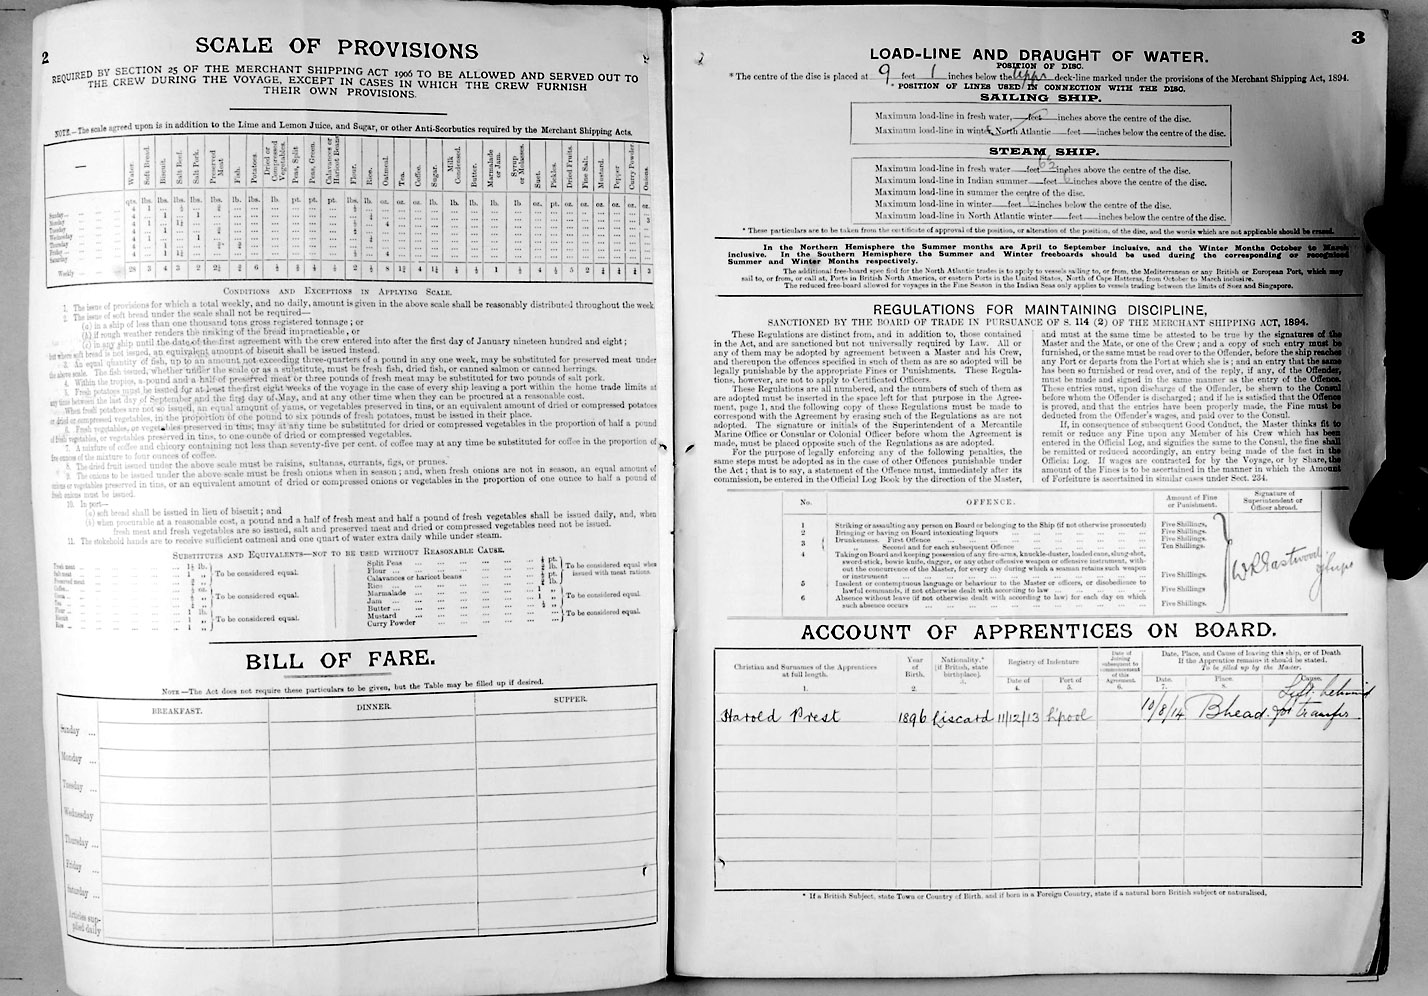 2
SCALE OF PROVISIONS
REQUIRED BY SECTION 25 OF THE MERCHANT SHIPPING ACT 1906 TO BE ALLOWED AND SERVED OUT TO
THE CREW DURING THE VOYAGE, EXCEPT IN CASES IN WHICH THE CREW FURNISH
THEIR OWN PROVISIONS.
NOTE.—The scale agreed upon is in addition to the Lime and Lemon Juice, and Sugar, or other Anti-Scorbutics required by the Merchant Shipping Acts.
Water. Soft Bread. Biscuit. Salt Beef. Salt Pork. Preserved Meat Fish. Potatoes. Dried or Compressed Vegetables. Peas, Split Peas, Green. Calavances or Haricot Beans Flour. Rice. Oatmeal. Tea. Coffee. Sugar. Milk Condensed. Butter. Marmalade or Jam. Syrup or Molasses. Suet. Pickles. Dried Fruits. Fine Salt. Mustard. Pepper Curry Powder. Onions.
Sunday
Monday
Tuesday
Wednesday
Thursday
Friday
Saturday
Weekly
CONDITIONS AND EXCEPTIONS IN APPLYING SCALE.
1. The issue of provisions for which a total weekly, and no daily, amount is given in the above scale shall be reasonably distributed throughout the week.
2. The issue of soft bread under the scale shall not be required—
(a) in a ship of less than one thousand tons gross registered tonnage; or
(b) if rough weather renders the making of the bread impracticable, or
(c) in any ship until the date of the first agreement with the crew entered into after the first day of January nineteen hundred and eight;
but where soft bread is not issued, an equivalent amount of biscuit shall be issued instead.
3. An equal quantity of fish, up to an amount not exceeding three-quarters of a pound in any one week, may be substituted for preserved meat under
the above scale. The fish issued, whether under the scale or as a substitute, must be fresh fish, dried fish, or canned salmon or canned herrings.
4. Within the tropics, a pound and a half of preserved meat or three pounds of fresh meat may be substituted for two pounds of salt pork.
5. Fresh potatoes must be issued for at least the first eight weeks of the voyage in the case of every ship leaving a port within the home trade limits at
any time between the last day of September and the first day of May, and at any other time when they can be procured at a reasonable cost.
When fresh potatoes are not so issued, an equal amount of yams, or vegetables preserved in tins, or an equivalent amount of dried or compressed potatoes
or dried or compressed vegetables, in the proportion of one pound to six pounds of fresh potatoes, must be issued in their place.
6. Fresh vegetables, or vegetables preserved in tins, may at any time be substituted for dried or compressed vegetables in the proportion of half a pound
of fresh vegetables, or vegetables preserved in tins, to one ounce of dried or compressed vegetables.
7. A mixture of coffee and chicory containing not less than seventy-five per cent. of coffee may at any time be substituted for coffee in the proportion of
five ounces of the mixture to four ounces of coffee.
8. The dried fruit issued under the above scale must be raisins, sultanas, currants, figs, or prunes.
9. The onions to be issued under the above scale must be fresh onions when in season; and, when fresh onions are not in season, an equal amount of
onions or vegetables preserved in tins, or an equivalent amount of dried or compressed onions or vegetables in the proportion of one ounce to half a pound of
fresh onions must be issued.
10. In port—
(a) soft bread shall be issued in lieu of biscuit; and
(b) when procurable at a reasonable cost, a pound and a half of fresh meat and half a pound of fresh vegetables shall be issued daily, and, when
fresh meat and fresh vegetables are so issued, salt and preserved meat and dried or compressed vegetables need not be issued.
11. The stokehold hands are to receive sufficient oatmeal and one quart of water extra daily while under steam.
SUBSTITUTES AND EQUIVALENTS—NOT TO BE USED WITHOUT REASONABLE CAUSE.
Fresh meat
Salt meat
Preserved meat
To be considered equal.
Coffee
Cocoa
Tea
To be considered equal.
Flour
Biscuit
Rice
To be considered equal.
Split Peas
Flour
Calavances or haricot beans
Rice
To be considered equal when
issued with meat rations.
Marmalade
Jam
Butter
To be considered equal.
Mustard
Curry Powder
To be considered equal.
BILL OF FARE.
NOTE—The Act does not require these particulars to be given, but the Table may be filled up if desired.
BREAKFAST. DINNER. SUPPER.
Sunday
Monday
Tuesday
Wednesday
Thursday
Friday
Saturday
Articles sup-
plied daily
3
LOAD-LINE AND DRAUGHT OF WATER.
POSITION OF DISC.
* The centre of the disc is placed at 9 feet 1 inches below the upper deck-line marked under the provisions of the Merchant Shipping Act, 1894.
* POSITION OF LINES USED IN CONNECTION WITH THE DISC.
SAILING SHIP.
Maximum load-line in fresh water, feet inches above the centre of the disc.
Maximum load-line in winter, North Atlantic feet inches below the centre of the disc.
STEAM SHIP.
Maximum load-line in fresh water feet 6½ inches above the centre of the disc.
Maximum load-line in Indian summer feet 6 inches above the centre of the disc.
Maximum load-line in summer the centre of the disc.
Maximum load-line in winter feet 6 inches below the centre of the disc.
Maximum load-line in North Atlantic winter feet inches below the centre of the disc.
* These particulars are to be taken from the certificate of approval of the position, or alteration of the position, of the disc, and the words which are not applicable should be erased.
In the Northern Hemisphere the Summer months are April to September inclusive, and the Winter Months October to March
inclusive. In the Southern Hemisphere the Summer and Winter freeboards should be used during the corresponding or recognised
Summer and Winter Months respectively.
The additional free-board specified for the North Atlantic trades is to apply to vessels sailing to, or from, the Mediterranean or any British or European Port, which may
sail to, or from, or call at, Ports in British North America, or eastern Ports in the United States, North of Cape Hatteras, from October to March inclusive.
The reduced free-board allowed for voyages in the Fine Season in the Indian Seas only applies to vessels trading between the limits of Suez and Singapore.
REGULATIONS FOR MAINTAINING DISCIPLINE,
SANCTIONED BY THE BOARD OF TRADE IN PURSUANCE OF S. 114 (2) OF THE MERCHANT SHIPPING ACT, 1894.
These Regulations are distinct from, and in addition to, those contained
in the Act, and are sanctioned but not universally required by Law. All or
any of them may be adopted by agreement between a Master and his Crew,
and thereupon the offences specified in such of them as are so adopted will be
legally punishable by the appropriate Fines or Punishments. These Regula-
tions, however, are not to apply to Certificated Officers.
These Regulations are all numbered, and the numbers of such of them as
are adopted must be inserted in the space left for that purpose in the Agree-
ment, page 1, and the following copy of these Regulations must be made to
correspond with the Agreement by erasing such of the Regulations as are not
adopted. The signature or initials of the Superintendent of a Mercantile
Marine Office or Consular or Colonial Officer before whom the Agreement is
made, must be placed opposite such of the Regulations as are adopted.
For the purpose of legally enforcing any of the following penalties, the
same steps must be adopted as in the case of other Offences punishable under
the Act; that is to say, a statement of the Offence must, immediately after its
commission, be entered in the Official Log Book by the direction of the Master,
and must at the same time be attested to be true by the signatures of the
Master and the Mate, or one of the Crew; and a copy of such entry must be
furnished, or the same must be read over to the Offender, before the ship reaches
any Port or departs from the Port at which she is; and an entry that the same
has been so furnished or read over, and of the reply, if any, of the Offender,
must be made and signed in the same manner as the entry of the Offence.
These entries must, upon discharge of the Offender, be shewn to the Consul
before whom the Offender is discharged; and if he is satisfied that the Offence
is proved, and that the entries have been properly made, the Fine must be
deducted from the Offender's wages, and paid over to the Consul.
If, in consequence of subsequent Good Conduct, the Master thinks fit to
remit or reduce any Fine upon any Member of his Crew which has been
entered in the Official Log, and signifies the same to the Consul, the fine shall
be remitted or reduced accordingly, an entry being made of the fact in the
Official Log. If wages are contracted for by the Voyage, or by Share, the
amount of the Fines is to be ascertained in the manner in which the Amount
of Forfeiture is ascertained in similar cases under Sect. 234.
No. OFFENCE. Amount of Fine or Punishment. Signature of Superintendent or Officer abroad.
1 Striking or assaulting any person on Board or belonging to the Ship (if not otherwise prosecuted) Five Shillings.
2 Bringing or having on Board intoxicating liquors Five Shillings.
3 Drunkenness. First Offence Five Shillings.
„ Second and for each subsequent Offence Ten Shillings.
4 Taking on Board and keeping possession of any fire-arms, knuckle-duster, loaded cane, slung-shot,
sword-stick, bowie knife, dagger, or any other offensive weapon or offensive instrument, with-
out the concurrence of the Master, for every day during which a seaman retains such weapon
or instrument Five Shillings.
5 Insolent or contemptuous language or behaviour to the Master or officers, or disobedience to
lawful commands, if not otherwise dealt with according to law Five Shillings
6 Absence without leave (if not otherwise dealt with according to law) for each day on which
such absence occurs Five Shillings.
W R Eastwood
ACCOUNT OF APPRENTICES ON BOARD.
Christian and Surnames of the Apprentices at full length. 1.
Year of Birth. 2.
Nationality.* (if British, state birthplace). 3.
Registry of Indenture
Date of 4. Port of 5.
Date of Joining subsequent to commencement of this Agreement. 6.
Date, Place, and Cause of leaving this ship, or of Death
If the Apprentice remains it should be stated.
To be filled up by the Master.
Date. 7. Place. 8. Cause.
Harold Prest 1896 Liscard 11/12/13 L'pool 10/8/14 Bhead. Left behind
for transfer
* If a British Subject, state Town or Country of Birth, and if born in a Foreign Country, state if a natural born British subject or naturalised.